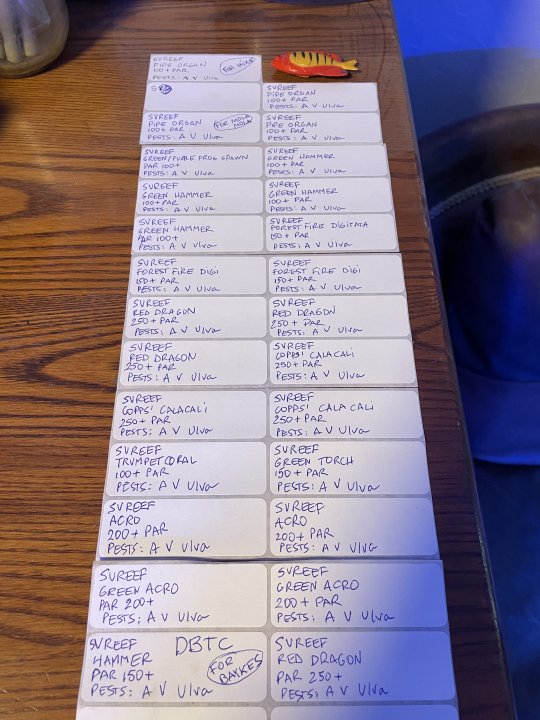 SVREEF
PIPE ORGAN
100+ PAR
FOR
PESTS: A V Ulva
SV
SVREEF
PIPE ORGAN
100+ PAR
PESTS: A V Ulva
SVREEF
PIPE ORGAN
100+ PAR
FOR MOLA
MOLA
PESTS: A V Ulva
SVREEF
PIPE ORGAN
100+ PAR
PESTS: A V Ulva
SVREEF
GREEN/PURPLE FROG SPAWN
PAR 100+
PESTS: A V Ulva
SVREEF
GREEN HAMMER
100+ PAR
PESTS: A V Ulva
SVREEF
GREEN HAMMER
100+ PAR
PESTS: A V Ulva
SVREEF
GREEN HAMMER
100+ PAR
PESTS: A V Ulva
SVREEF
GREEN HAMMER
PAR 100+
PESTS: A V Ulva
SVREEF
FOREST FIRE DIGITATA
150+ PAR
PESTS: A V Ulva
SVREEF
FOREST FIRE DIGI
150+ PAR
PESTS: A V Ulva
SVREEF
FOREST FIRE DIGI
150+ PAR
PESTS: A V Ulva
SVREEF
RED DRAGON
250+ PAR
PESTS: A V Ulva
SVREEF
RED DRAGON
250+ PAR
PESTS: A V Ulva
SVREEF
RED DRAGON
250+ PAR
PESTS: A V Ulva
SVREEF
COPPS' CALACALI
250+ PAR
PESTS: A V Ulva
SVREEF
COPPS' CALACALI
250+ PAR
PESTS: A V Ulva
SVREEF
COPPS' CALACALI
250+ PAR
PESTS: A V Ulva
SVREEF
TRUMPET CORAL
100+ PAR
PESTS: A V Ulva
SVREEF
GREEN TORCH
150+ PAR
PESTS: A V Ulva
SVREEF
ACRO
200+ PAR
PESTS: A V Ulva
SVREEF
ACRO
200+ PAR
PESTS: A V Ulva
SVREEF
GREEN ACRO
PAR 200+
PESTS: A V Ulva
SVREEF
GREEN ACRO
200+ PAR
PESTS: A V Ulva
SVREEF DBTC
HAMMER
PAR 150+
FOR
BAKKES
PESTS: A V Ulva
SVREEF
RED DRAGON
PAR 250+
PESTS: A V Ulva